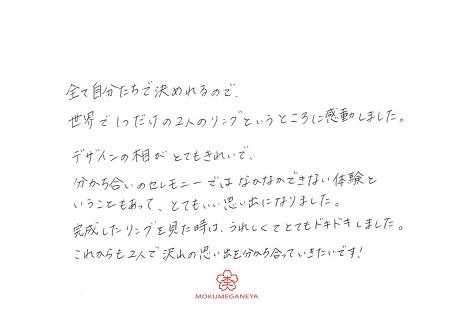 全て自分たちで決めれるので、
世界で1つだけの2人のリングというところに感動しました。
デザインの相がとてもきれいで、
分かち合いのセレモニーではなかなかできない体験と
いうこともあって、とてもいい思い出になりました。
完成したリングを見た時は、うれしくてとてもドキドキしました。
これからも2人で沢山の思い出を分かち合っていきたいです!
MOKUMEGANEYA